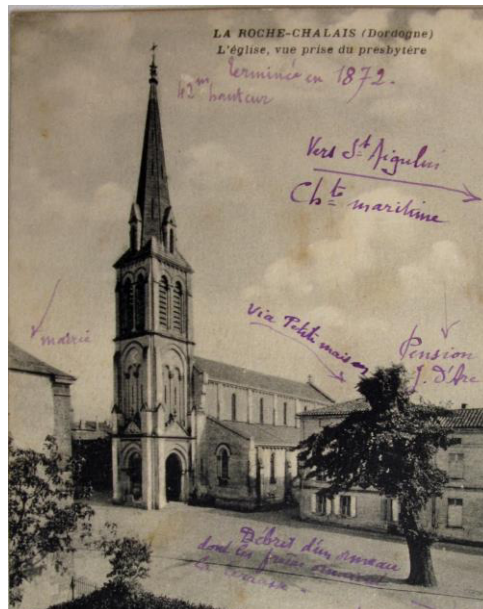 LA ROCHE-CHALAIS (Dordogne)
L'église, vue prise du presbytère
terminée en 1872.
42m hauteur
Vers St Aigulin
Chte maritime
mairie
Via Petite maison
Pension
J. d'Arc
Débris d'un ormeau
dont les